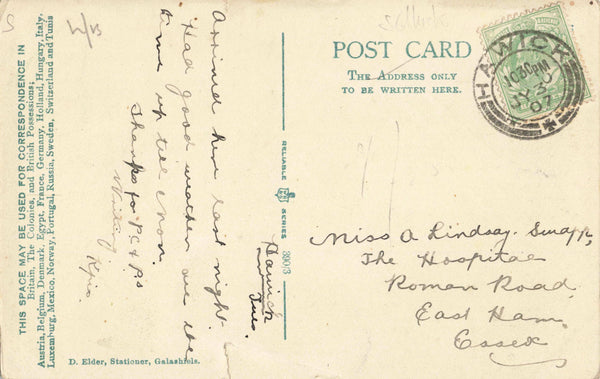 THIS SPACE MAY BE USED FOR CORRESPONDENCE IN
Britain, The Colonies, and British Possessions;
Austria, Belgium, Denmark, Egypt, France, Germany, Holland, Hungary, Italy,
Luxemburg, Mexico, Norway, Portugal, Russia, Sweden, Switzerland and Tunis
Arrived here last night.
Had good weather all the
time up till now.
Thanks for P.C. & P.S
Writing
Hawick
Tues.
D. Elder, Stationer, Galashiels.
RELIABLE
SERIES
POST CARD
THE ADDRESS ONLY
TO BE WRITTEN HERE.
HAWICK
10 30 PM
JY 3
07
Miss A Lindsay.
The Hospital
Roman Road
East Ham
Essex